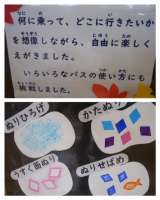 何に乗って、どこに行きたいか
を想像しながら、自由に楽しく
えがきました。
いろいろなパスの使い方にも
挑戦しました。
ぬりひろげ
かたぬり
うすく面ぬり
ぬりせばめ